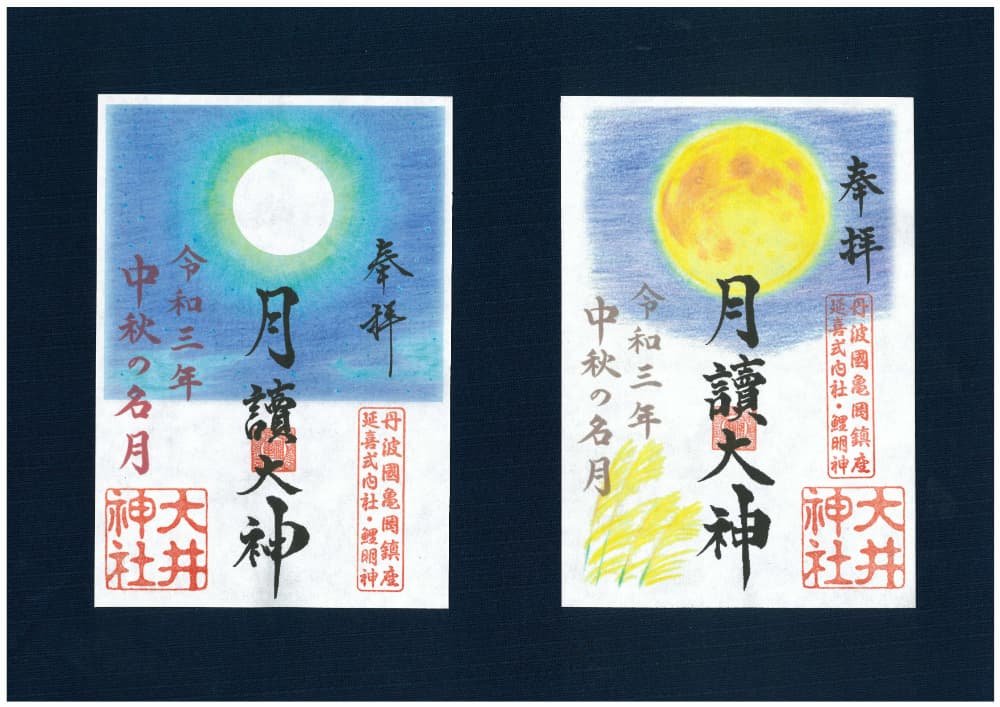 奉拝
月讀大神
令和三年
中秋の名月
丹波國亀岡鎮座
延喜式内社・鯉明神
大井
神社
奉拝
月讀大神
令和三年
中秋の名月
丹波國亀岡鎮座
延喜式内社・鯉明神
大井
神社